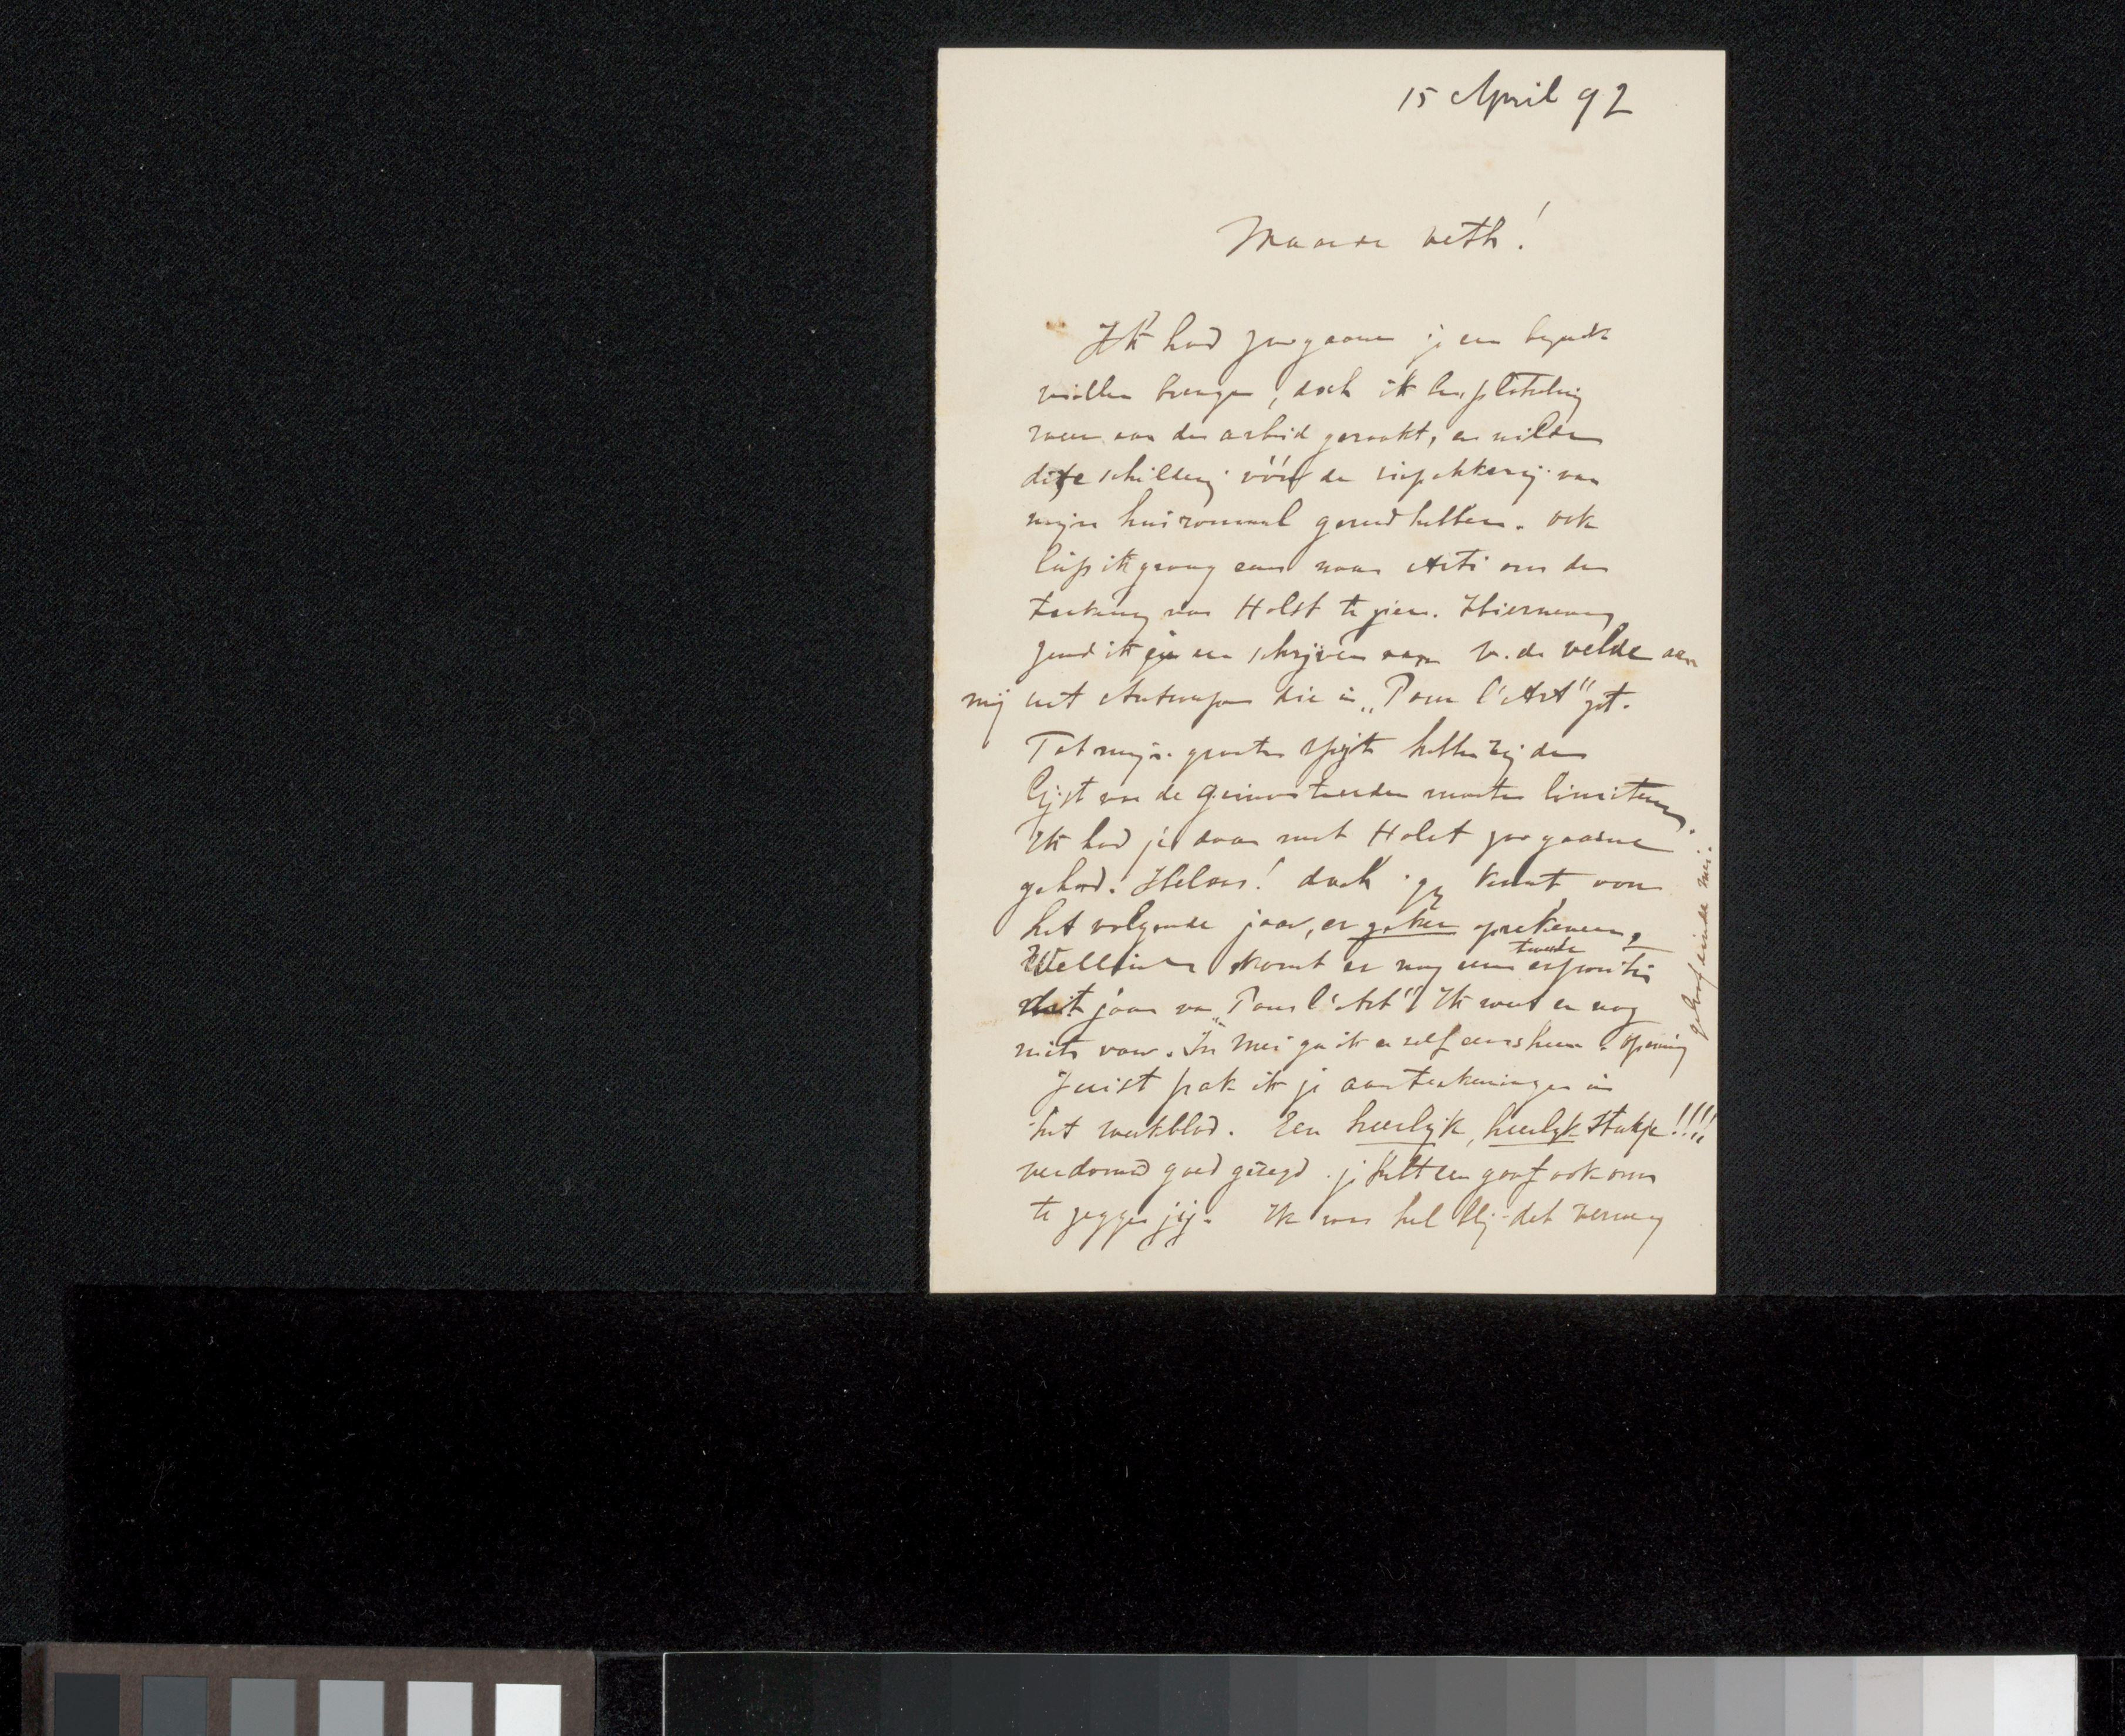 15 April 92
Waarde Veth!
Ik had zoo gaarne je een bezoek
willen brengen, doch ik ben plotseling
weer aan den arbeid geraakt, en wilde
deze schilderij vóór de van
mijn huis gereed hebben. Ook
liep ik graag eens naar Arti om de
teekening van Holst te zien. Hierneven
zend ik je een schrijven van V. de Velde aan
mij uit Antwerpen die in "Pour l'Art" zit.
Tot mijn groote spijt hebben zij de
lijst van de geinviteerden moeten limiteeren.
Ik had je daar met Holst zoo gaarne
gehad. Helaas! doch gy kunt voor
het volgende jaar, er zeker oprekenen,
Wellicht komt er nog eene tweede expositie
dit jaar van "Pour l'Art" Ik weet er nog
niets van. In Mei ga ik er zelf eens heen. opening
geloof einde mei.
Juist pak ik je aanteekeningen in
het weekblad. Een heerlijk, heerlyk stukje!!!!
verdomd goed gezegd. je hebt een gaaf ook om
te zeggen jij. Ik was heel blij dat Verwey